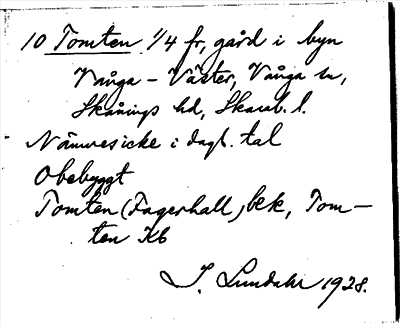 10 Tomten 1/4 fr, gård i byn
Vånga - Väster, Vånga sn,
Skånings hd, Skarab. l.
Nämnes icke i dagl. tal
Obebyggt
Tomten (Fagerhall) bek, Tom-
ten Kb
I. Lundahl 1928.